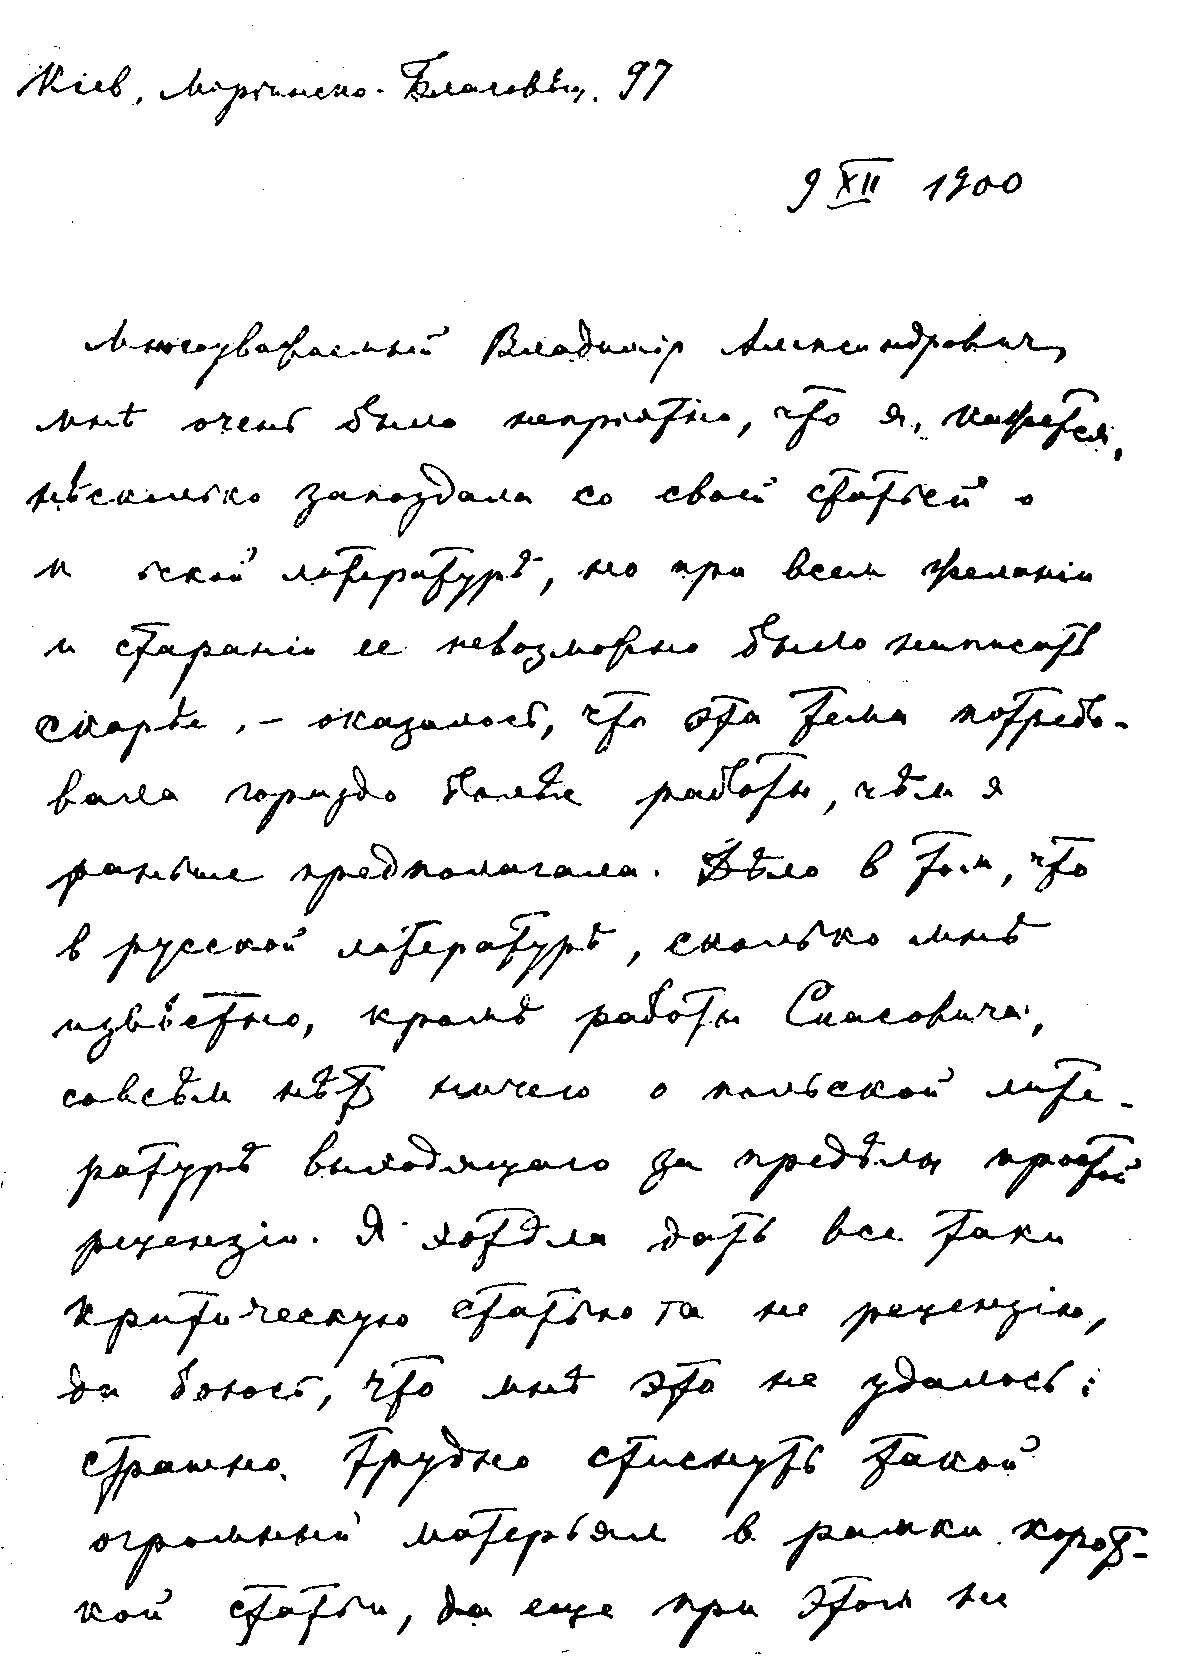 Кіев, Маріинско-Благовѣщ. 97
9 XII 1900
Многоуважаемый Владимір Александрович,
мнѣ очень было непріятно, что я, кажется,
нѣсколько запоздала со своей статьей о
ской литературѣ, но при всем желаніи
и стараніи ее невозможно было написать
скорѣе, – оказалось, что эта тема потребо-
вала гораздо болѣе работы, чѣм я
раньше предполагала. Дѣло в том, что
в русской литературѣ, сколько мнѣ
извѣстно, кромѣ работы Спасовича,
совсѣм нѣт ничего о польской лите-
ратурѣ выходящаго за предѣлы простой
рецензіи. Я хотѣла дать все таки
критическую статью а не рецензію,
да боюсь, что мнѣ это не удалось:
страшно трудно стиснуть такой
огромный матерьял в рамки корот-
кой статьи, да еще при этом не